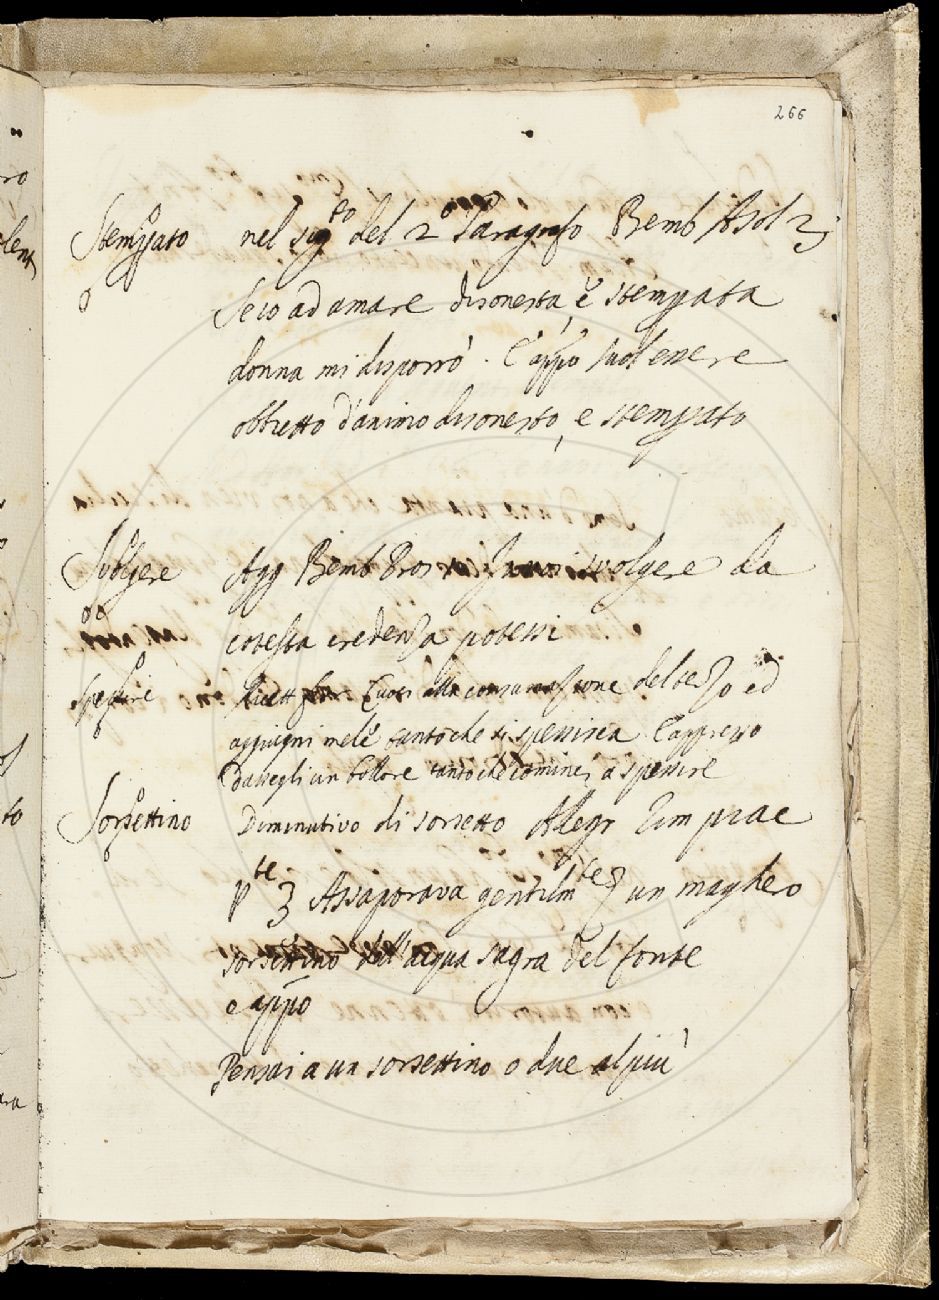 266
Stemp̱ato nel sig.to del 2.o Paragrafo Bemb Asol 2,
Se io ad amare disonesta, e stemp̱ata
donna mi disporrò. E app̱o suol essere
obbietto d'animo disonesto, e stemp̱ato
Svolgere Agg Bemb Pros svolgere da
cotesta credenza potessi
spessire Ricett Cuori alla consumazione del terzo ed
aggiugni mele tantoche si spessisca E appresso
dallegli un bollore tanto che cominci a spessire
Sorsettino Diminutivo di sorsetto Allegr Rim prae
p.te 3 Assaporava gentilm.te un maghero
sorsettino dell'acqua sagra del fonte
e app̱o
Pensai a un sorsettino o due al più